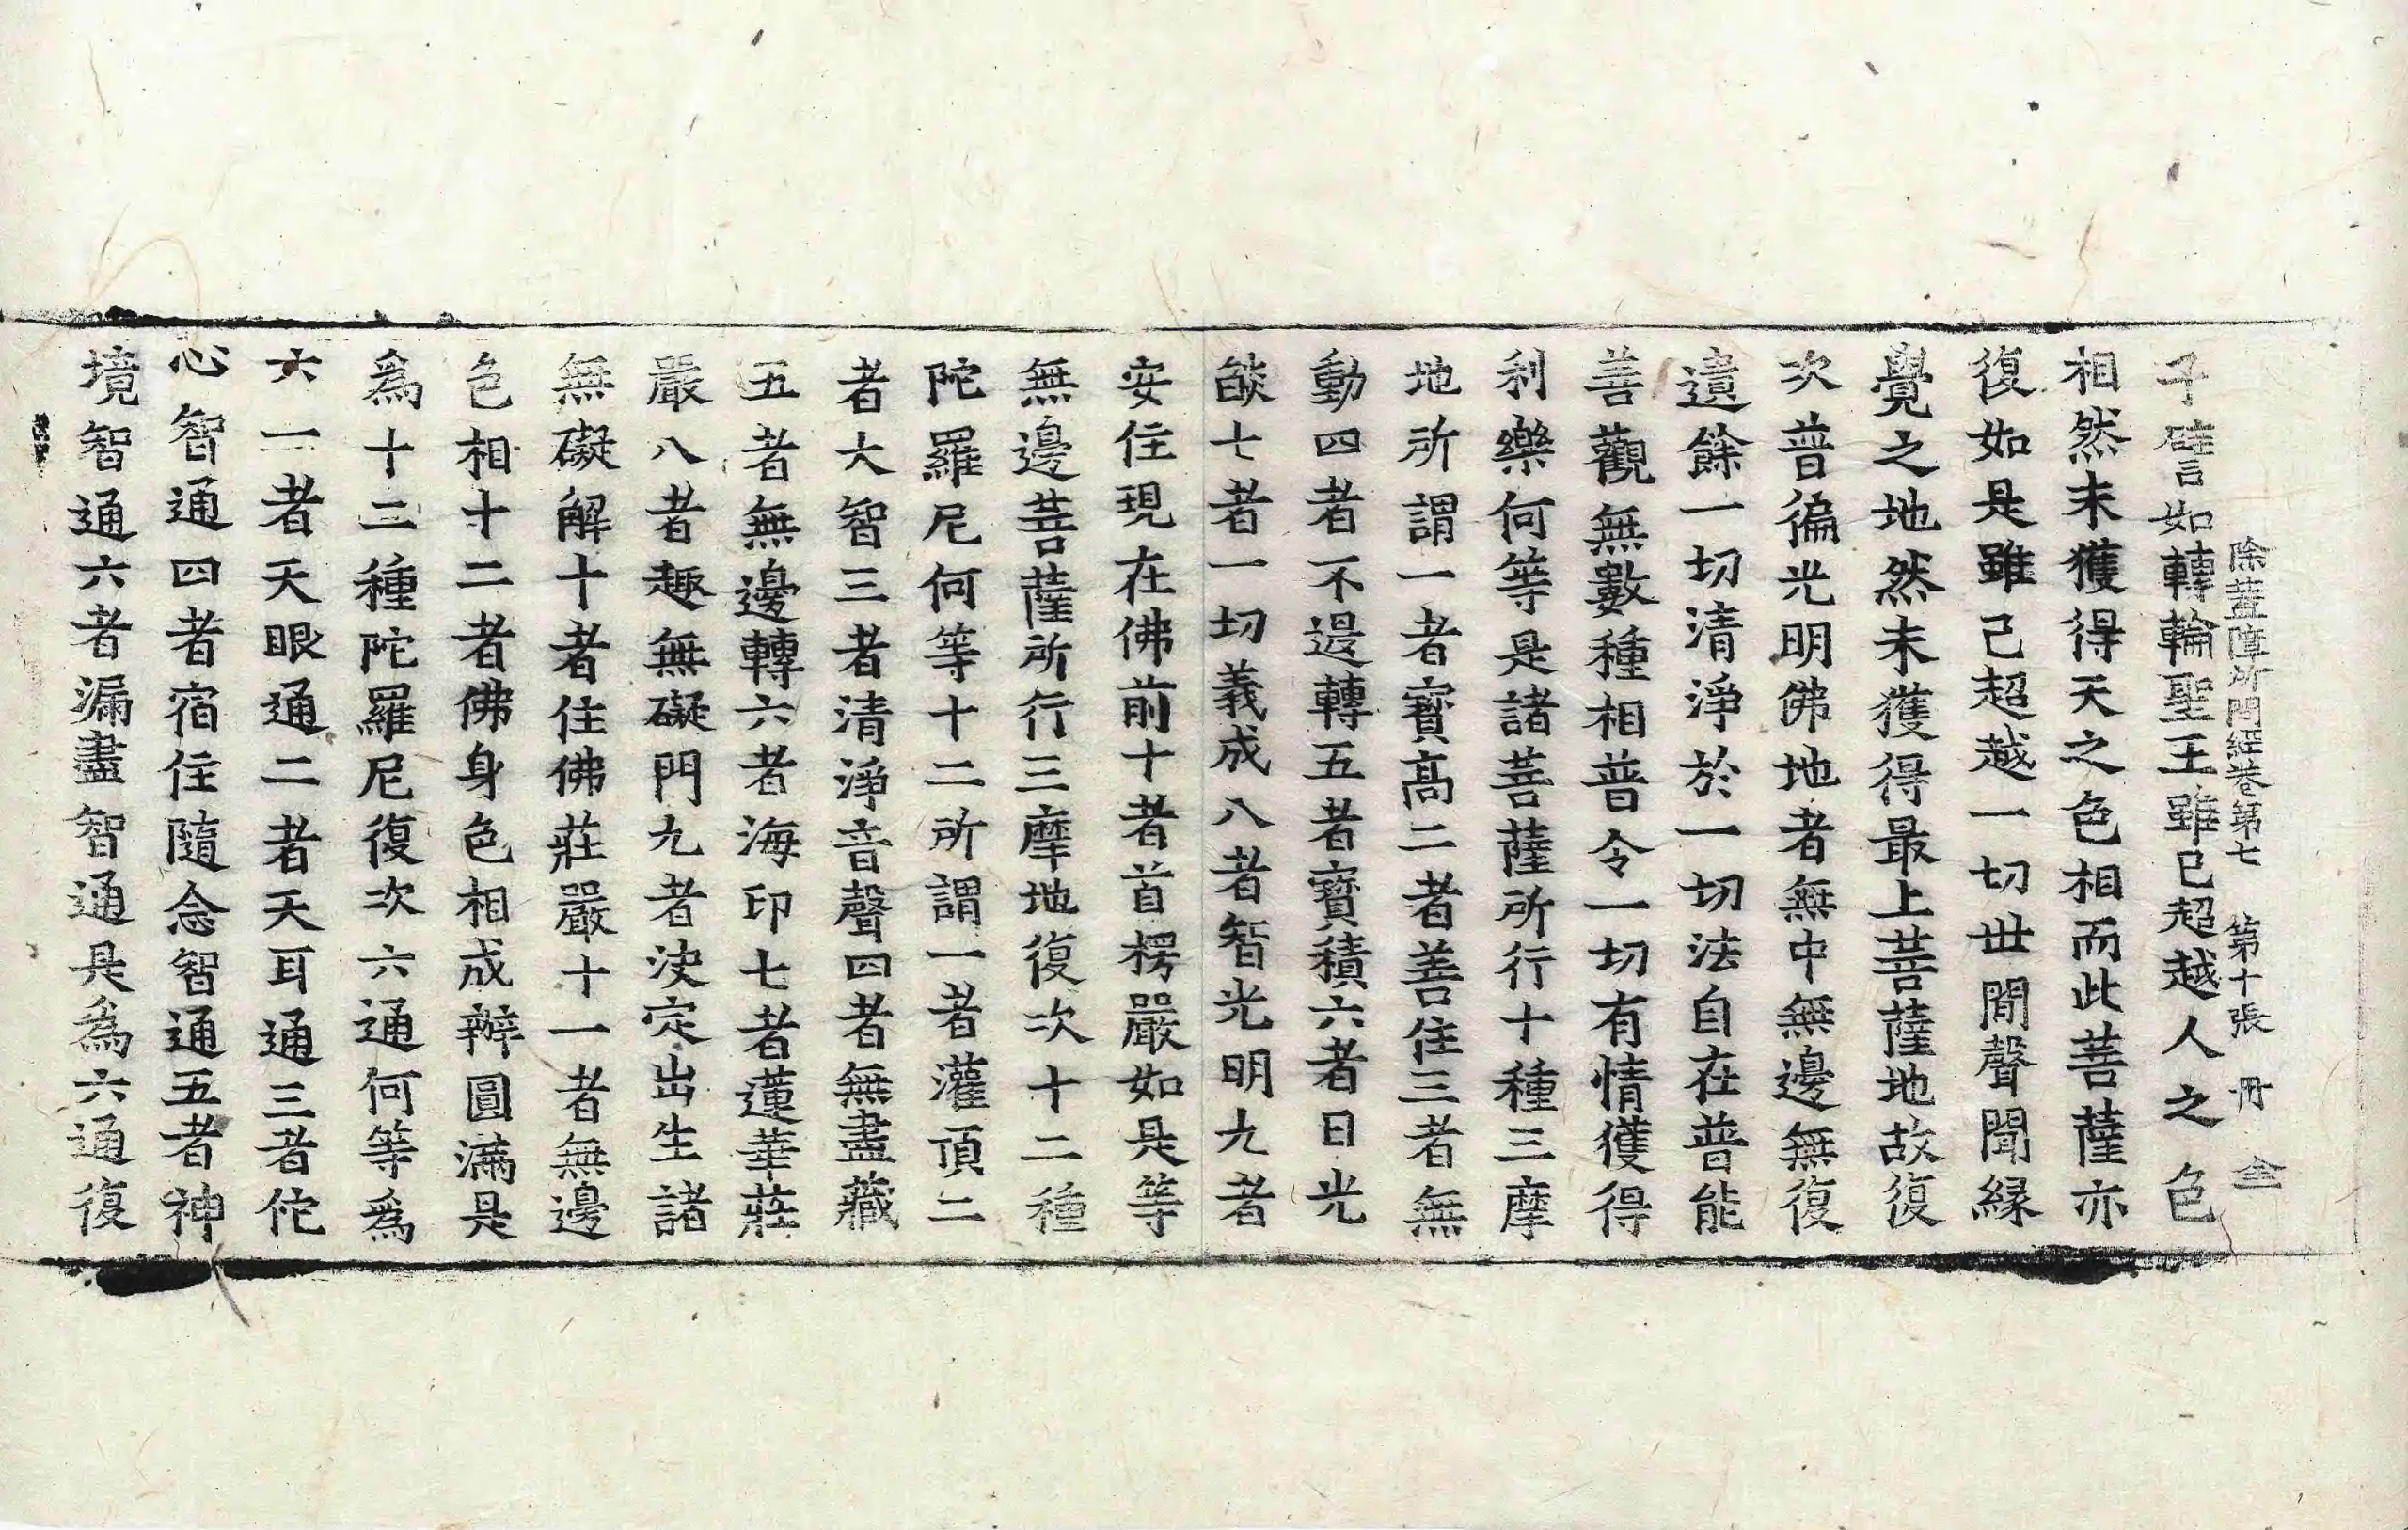 除蓋障所問經卷第七　第十張　冊　全
子譬如轉輪聖王雖已超越人之色
相然未獲得天之色相而此菩薩亦
復如是雖已超越一切世間聲聞緣
覺之地然未獲得最上菩薩地故復
次普徧光明佛地者無中無邊無復
遺餘一切清淨於一切法自在普能
善觀無數種相普令一切有情獲得
利樂何等是諸菩薩所行十種三摩
地所謂一者寶高二者善住三者無
動四者不退轉五者寶積六者日光
燄七者一切義成八者智光明九者
安住現在佛前十者首楞嚴如是等
無邊菩薩所行三摩地復次十二種
陀羅尼何等十二所謂一者灌頂二
者大智三者清淨音聲四者無盡藏
五者無邊轉六者海印七者蓮華莊
嚴八者趣無礙門九者決定出生諸
無礙解十者住佛莊嚴十一者無邊
色相十二者佛身色相成辦圓滿是
爲十二種陀羅尼復次六通何等爲
六一者天眼通二者天耳通三者佗
心智通四者宿住隨念智通五者神
境智通六者漏盡智通是爲六通復